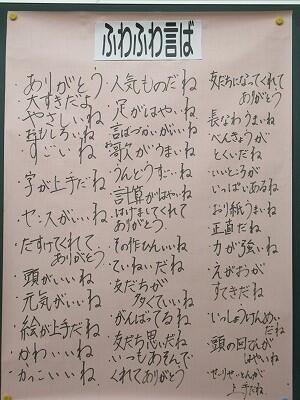 ふわふわ言ば
・ありがとう
・大すきだよ
・やさしいね
・おもしろいね
・すごいね
・字が上手だね
・センスがいいね
・たすけてくれて
ありがとう
・頭がいいね
・元気がいいね
・絵が上手だね
・かわいいね
・かっこいいね
・人気ものだね
・足がはやいね
・言ばづかいがいいね
・歌がうまいね
・うんどうすごいね
・計算がはやいね
・はげましてくれて
ありがとう
・その作せんいいね
・ていねいだね
・友だちが
多くていいね
・がんばってるね
・友だち思いだね
・いつもあそんで
くれてありがとう
・友だちになってくれて
ありがとう
・長なわうまいね
・べんきょうが
とくいだね
・いいところが
いっぱいあるね
・おり紙うまいね
・正直だね
・力が強いね
・えがおが
すてきだね
・いっしょうけんめい
だね
・頭の回てんが
はやいね
上手だね